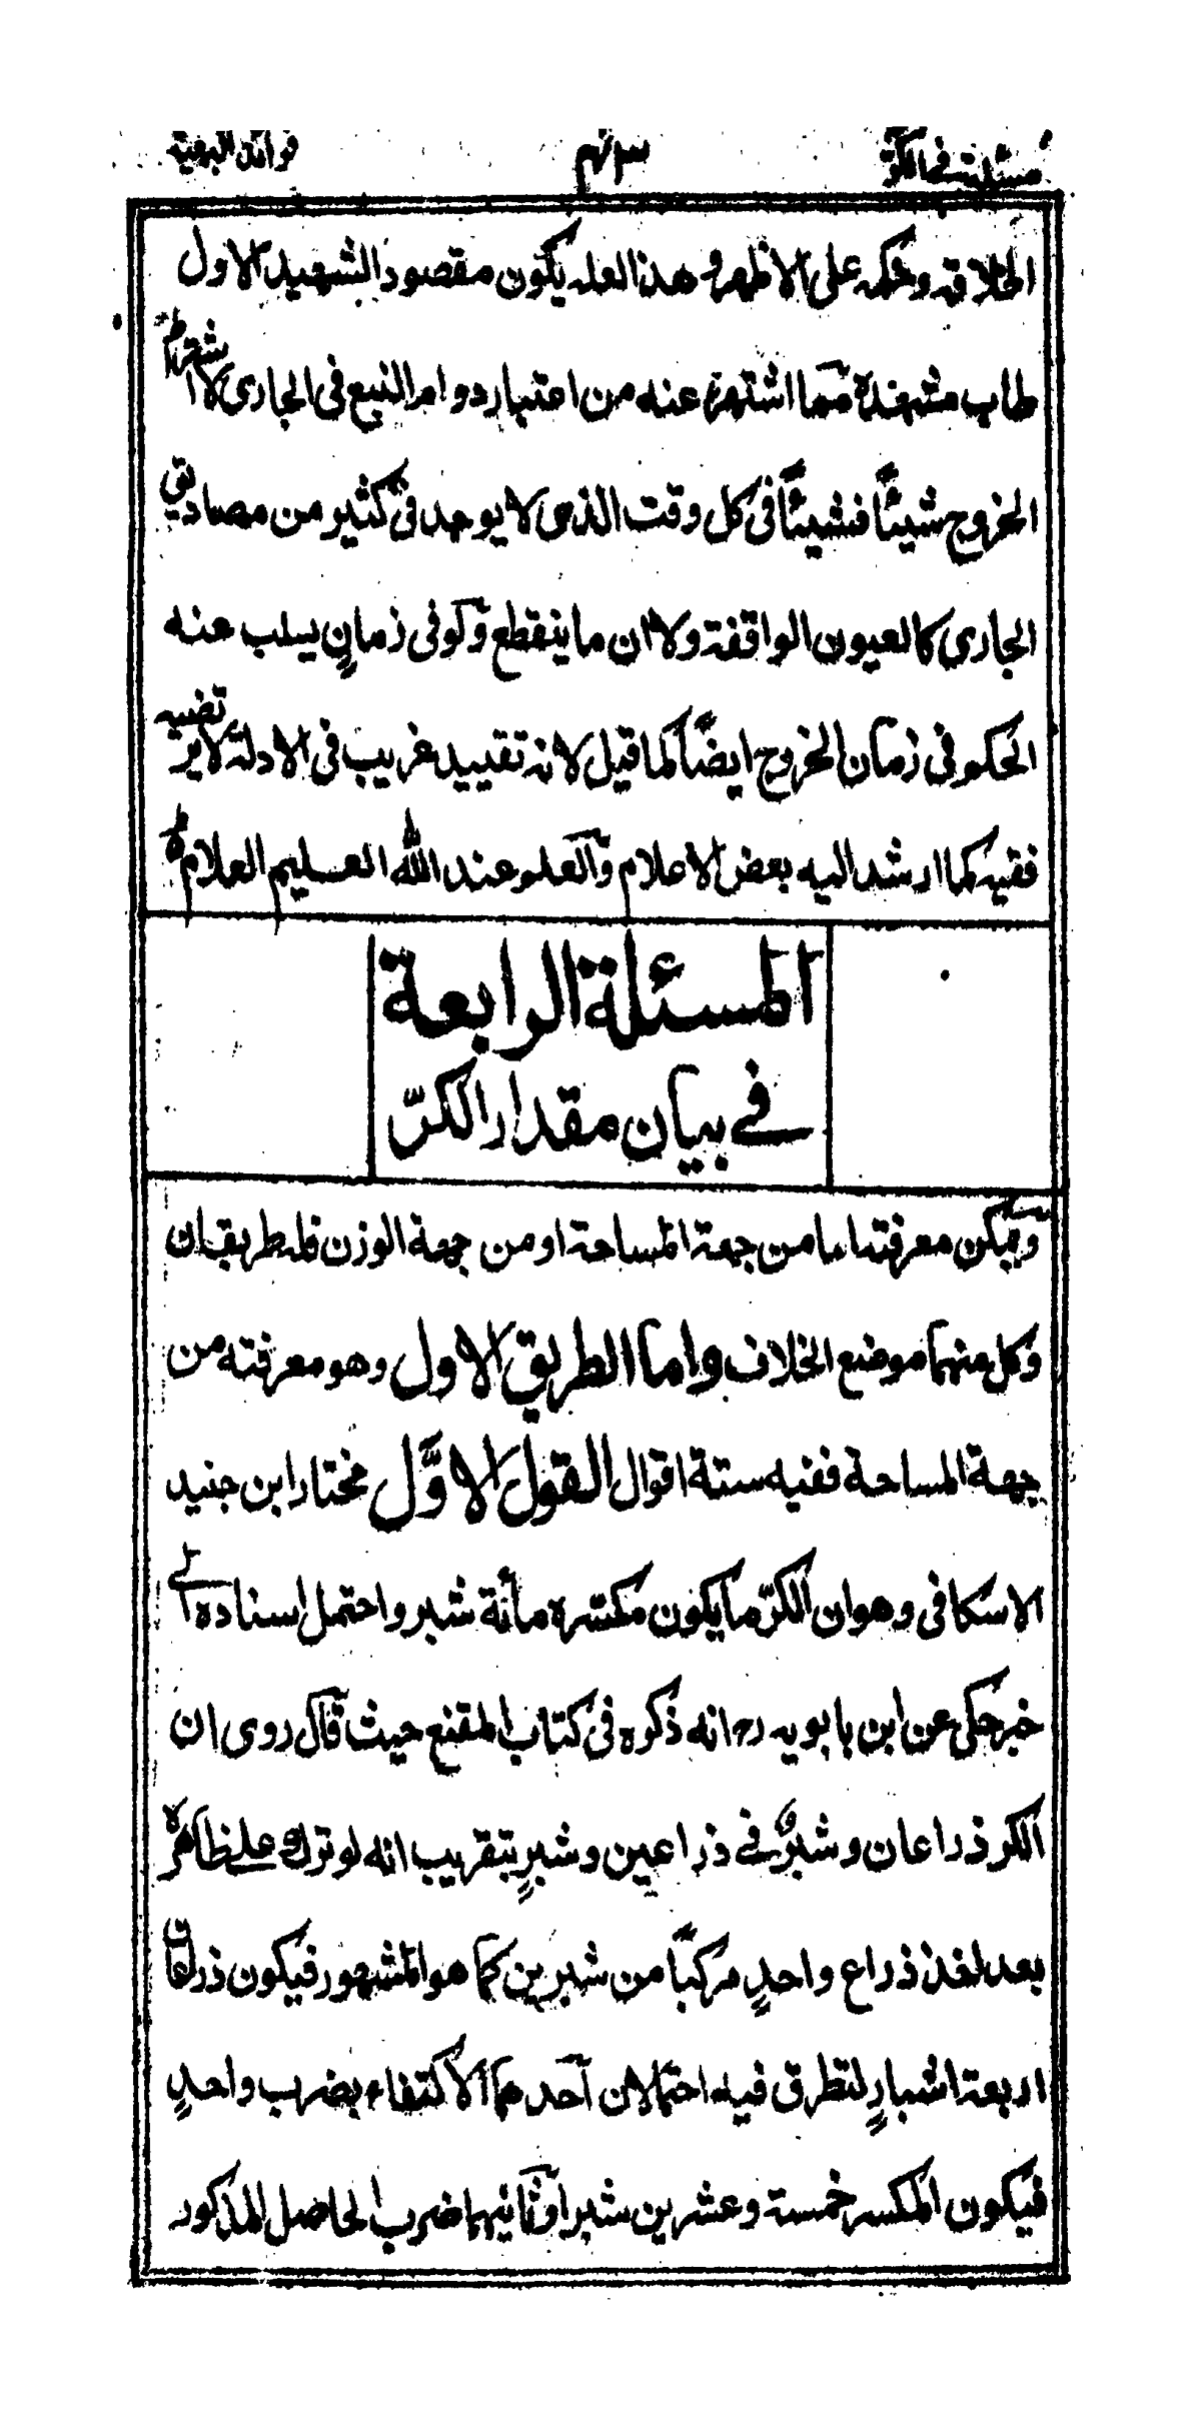 مسئلة في الكر ٤٣ فوائد البهية
اطلاقه وحكمه على الاظهر وهذا لعله يكون مقصود الشهيد الاول
طاب مشهده مما اشتهر عنه من اعتبار دوام النبع في الجاري لا اشتراط
الخروج شيئًا فشيئًا في كل وقت الذي لا يوجد في كثير من مصاديق
الجاري كالعيون الواقفة ولا ان ما ينقطع ولو في زمانٍ يسلب عنه
الحكم في زمان الخروج ايضًا كما قيل لانه تقييد غريب في الادلة لا يرتضيه
فقيه كما ارشد اليه بعض الاعلام والعلم عند الله العليم العلام
المسئلة الرابعة
في بيان مقدار الكرّ
ويمكن معرفته اما من جهة المساحة او من جهة الوزن فله طريقان
وكل منهما موضع الخلاف واما الطريق الاول وهو معرفته من
جهة المساحة ففيه ستة اقوال القول الاوّل مختار ابن جنيد
الاسكافي وهو ان الكرّ ما يكون مكسّره مأئة شبر واحتمل اسناده الے
خبر حكي عن ابن بابويه ره انه ذكره في كتاب المقنع حيث قال روى ان
الكر ذراعان وشبرٌ في ذراعين وشبرٍ بتقريب انه لو ترك على ظاهره
بعد اخذ ذراع واحدٍ مركبًا من شبرين كما هو المشهور فيكون ذراعان
اربعة اشبارٍ لتطرق فيه احتمالان احدهما الاكتفاء بضرب واحدٍ
فيكون المكسر خمسة وعشرين شبرا وثانيهما ضرب الحاصل المذكور